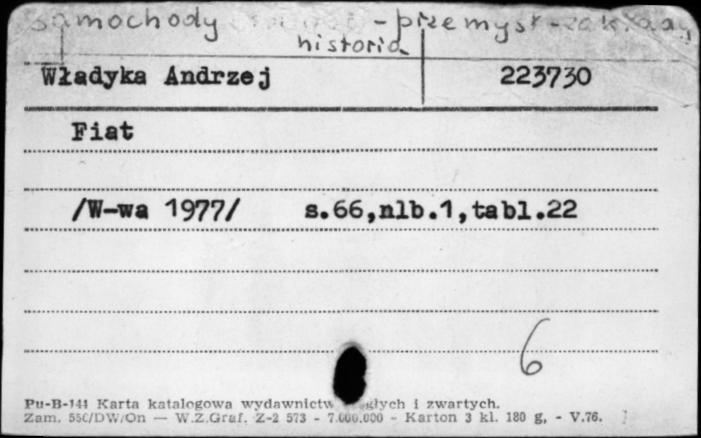 samochody - przemysł - zakłady
historia
Władyka Andrzej 223730
Fiat
/W-wa 1977/ s.66,nlb.1,tabl.22
6
Pu-B-144 Karta katalogowa wydawnictw głych i zwartych.
Zam. 55C/DW/On — W.Z.Graf. Z-2 573 - 7.000.000 - Karton 3 kl. 180 g, - V.76.